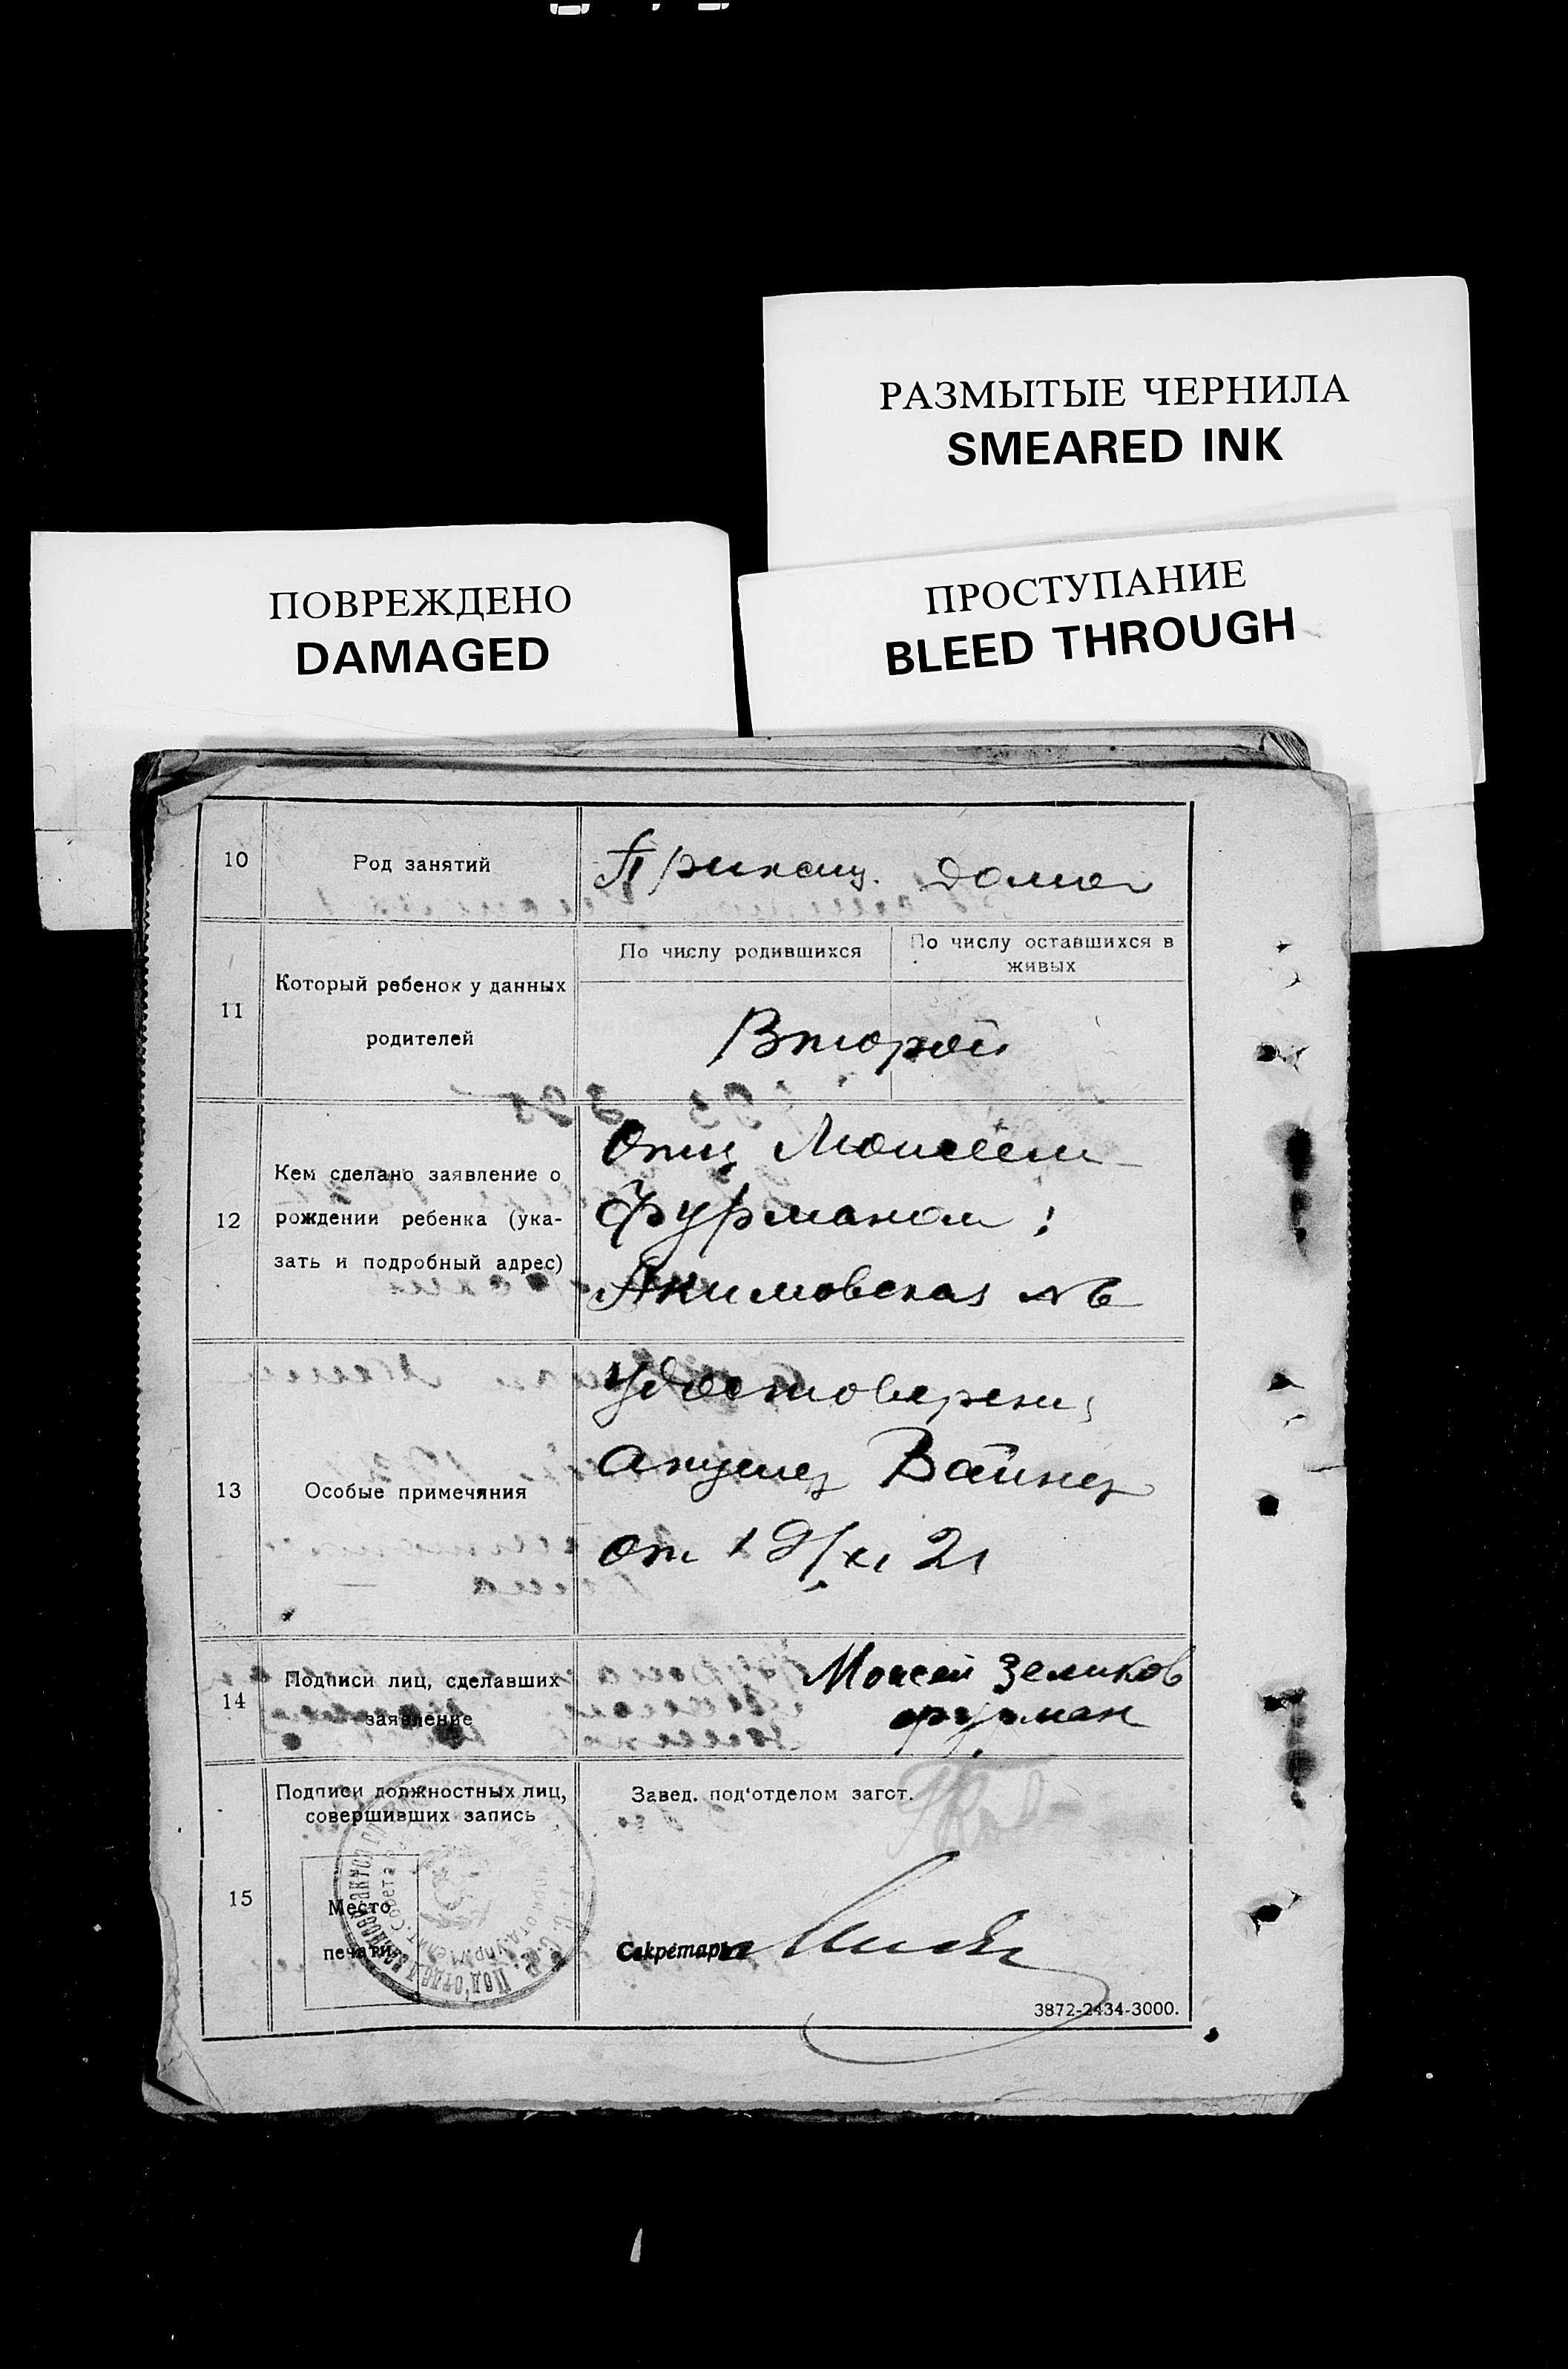 РАЗМЫТЫЕ ЧЕРНИЛА
SMEARED INK
ПОВРЕЖДЕНО
DAMAGED
ПРОСТУПАНИЕ
BLEED THROUGH
10
Род занятий
Прикащ. Дома
11
Который ребенок у данных
родителей
По числу родившихся
По числу оставшихся в
живых
Второй
12
Кем сделано заявление о
рождении ребенка (ука-
зать и подробный адрес)
Отц Моисеем
Фурманом;
Якимовская № 6
13
Особые примечания
Удостоверени
акушер Вайнер
от 19/XI 21
14
Подписи лиц, сделавших
заявление
Моисей Зеликов
Фурман
15
Подписи должностных лиц,
совершивших запись
Место
печати
Завед. под'отделом загст.
Секретарь
3872-2434-3000.